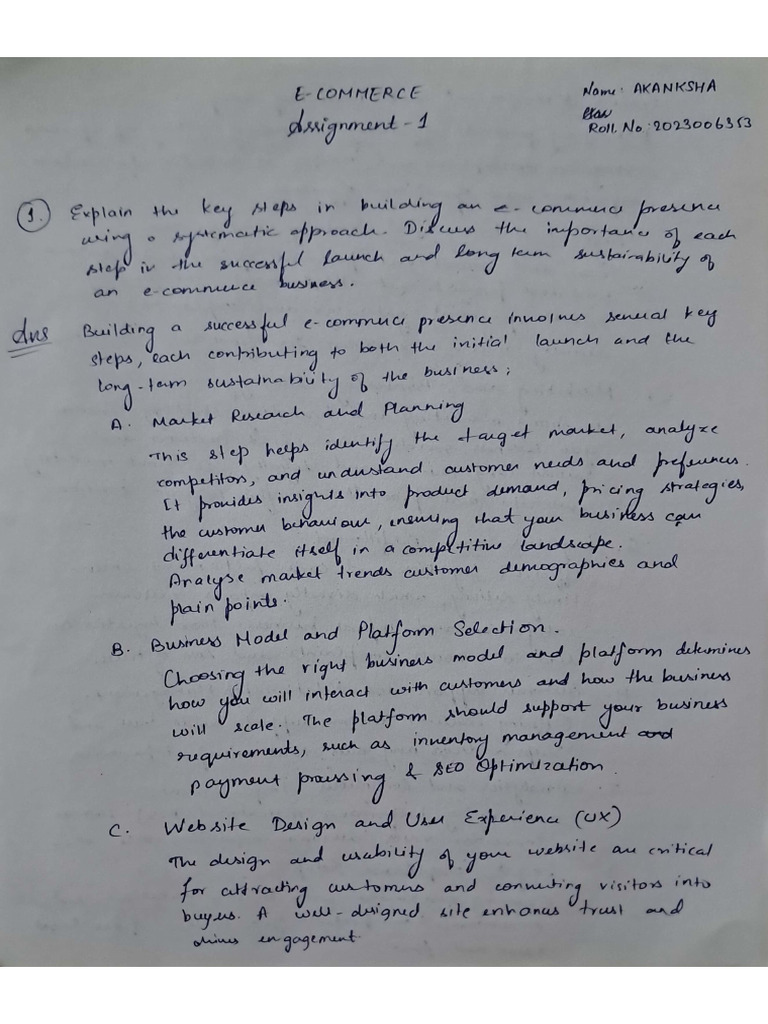 E-COMMERCE
Assignment - 1
Name: AKANKSHA
Roll. No: 2023006353
1. Explain the key steps in building an e-commerce presence
using a systematic approach. Discuss the importance of each
step in the successful launch and long term sustainability of
an e-commerce business.
Ans Building a successful e-commerce presence involves several key
steps, each contributing to both the initial launch and the
long-term sustainability of the business;
A. Market Research and Planning
This step helps identify the target market, analyze
competitors, and understand customer needs and preferences.
It provides insights into product demand, pricing strategies,
the customer behaviour, ensuring that your business can
differentiate itself in a competitive landscape.
Analyse market trends customer demographies and
plain points.
B. Business Model and Platform Selection.
Choosing the right business model and platform determines
how you will interact with customers and how the business
will scale. The platform should support your business
requirements, such as inventory management and
payment processing & SEO Optimization.
C. Website Design and User Experience (UX)
The design and usability of your website are critical
for attracting customers and converting visitors into
buyers. A well-designed site enhances trust and
drives engagement